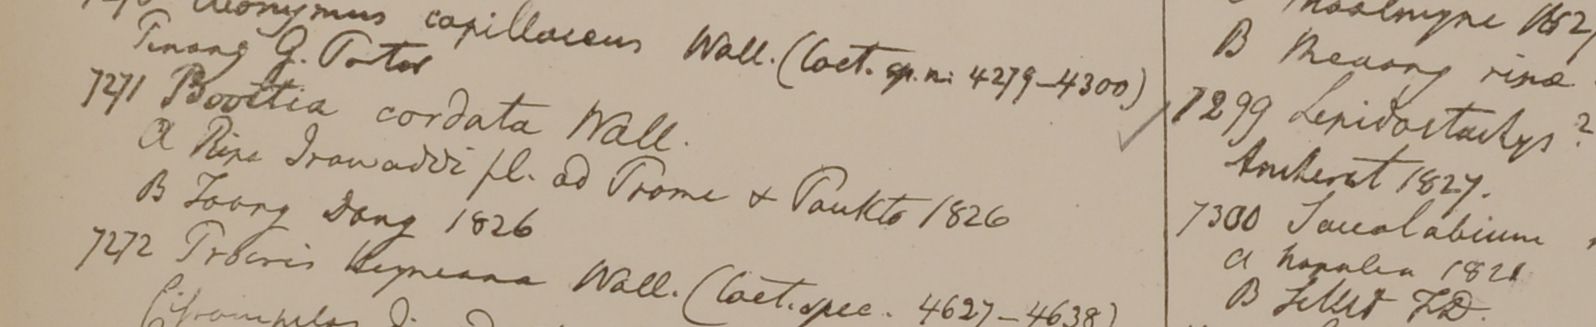 capillaceus Wall. (Coet. sp. n: 4279-4300)
Penang G. Porter
7271 Boottia cordata Wall.
a Ripa Irawaddi fl. ad Prome & Paukto 1826
B Toong Dong 1826
7272 Procris Heyneana Wall. (Coet. spec. 4627-4638)
1827
B
7299 Lepidostachys?
Amherst 1827.
7300 Saccolabium
a Napalia 1821
B Sillet F.D.